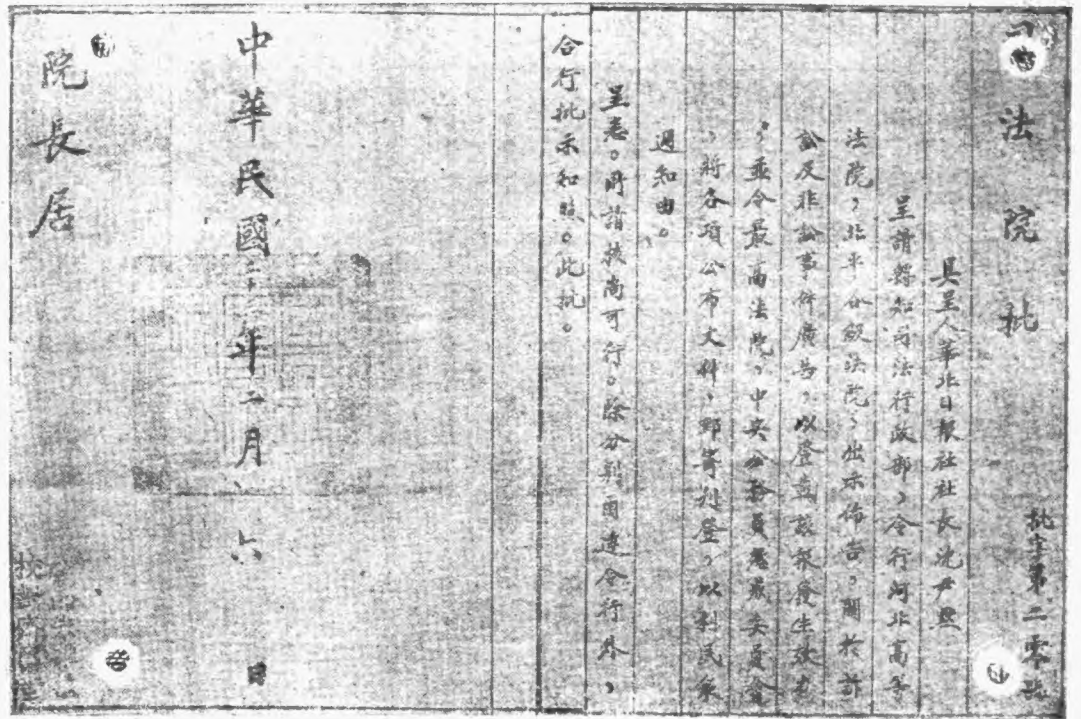 司法院批
批字第二零號
具呈人華北日報社社長沈尹默
呈請轉知司法行政部,令行河北高等
法院,北平分級法院,出示佈告,關於訴
訟及非訟事件廣告,以登載該報發生效力
,並令最高法院、中央公務員懲戒委員會
,將各項公布文件,郵寄刊登,以利民衆
週知由。
呈悉。所請核尚可行。除分別函達令行外,
合行批示知照。此批。
中華民國二十 年二月 六 日
院長居